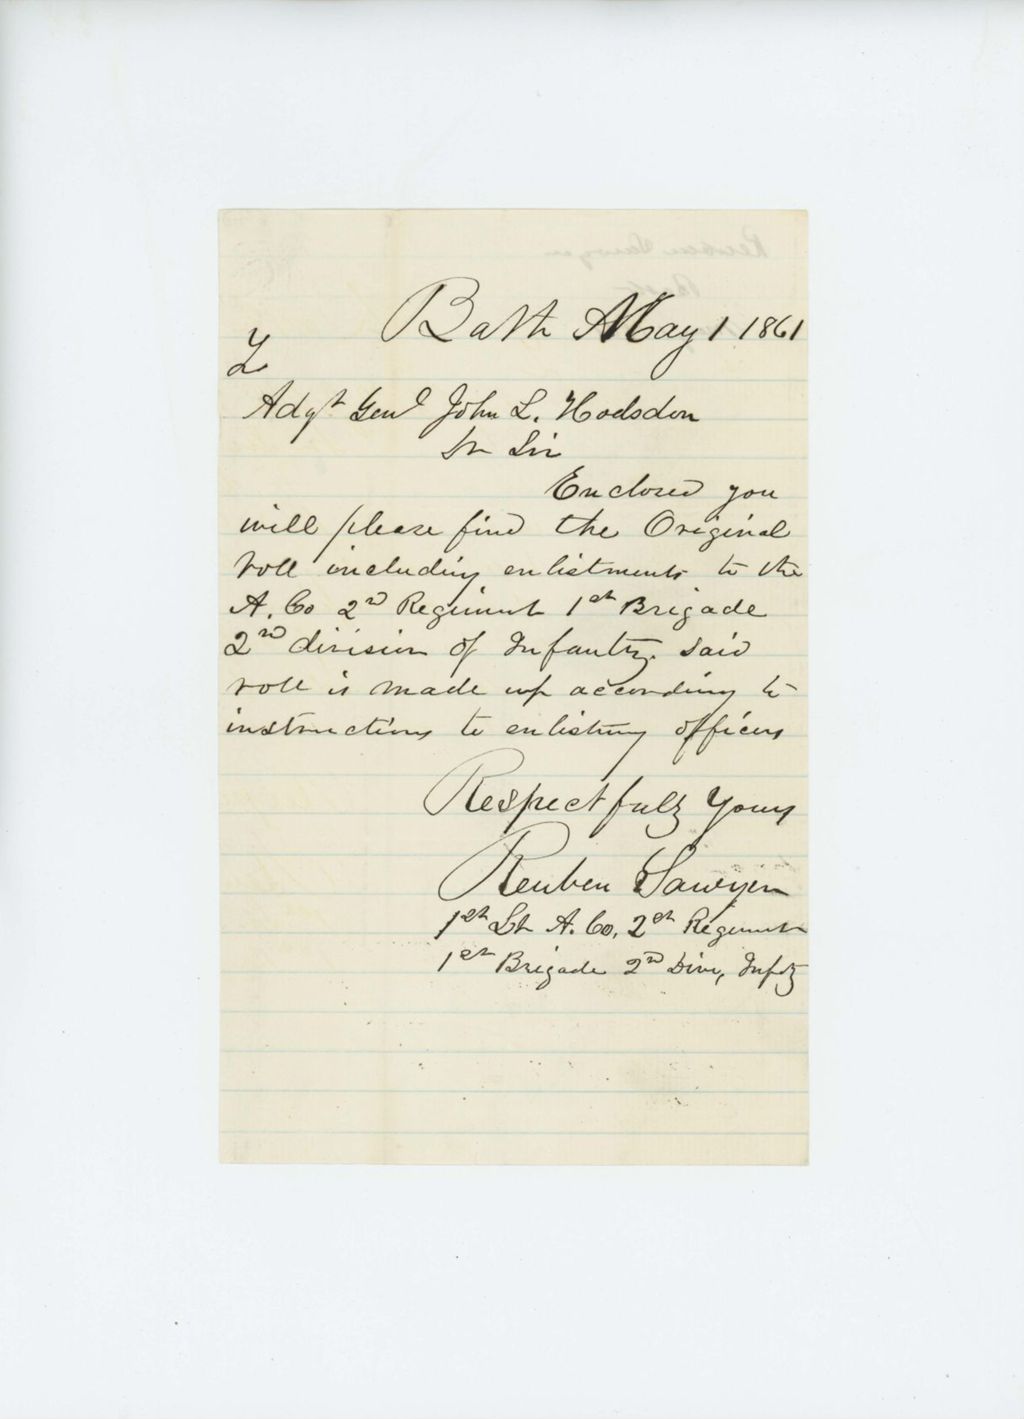 Bath May 1 1861
Adgt Genl John L. Hodsdon
Dr Sir
Enclosed you
will please find the Original
roll including enlistments to the
A. Co 2nd Regiment 1st Brigade
2nd division of Infantry. Said
roll is made up according to
instructions to enlisting officers
Respectfully Yours
Reuben Sawyer
1st Lt A. Co, 2nd Regiment
1st Brigade 2nd Divi, Infty